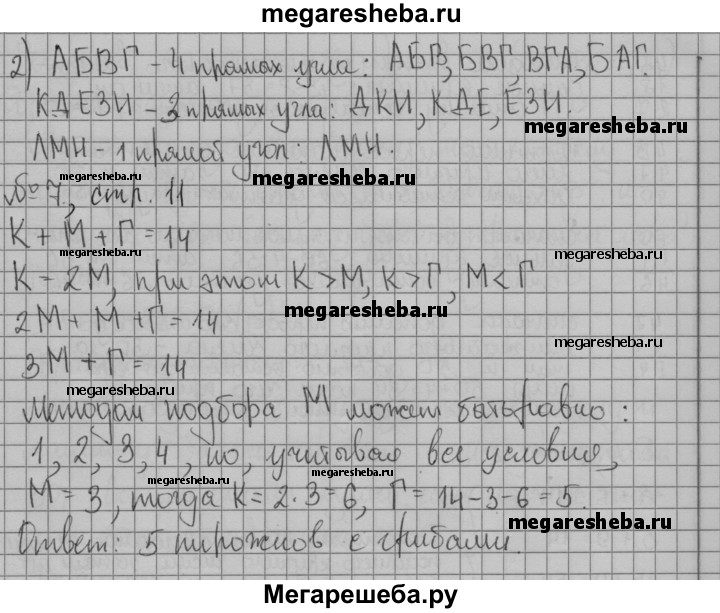 megaresheba.ru
2) АБВГ – 4 прямых угла: АБВ, БВГ, ВГА, БАГ.
КДЕЗИ – 3 прямых угла: ДКИ, КДЕ, ЕЗИ.
megaresheba.ru
ЛМН – 1 прямой угол: ЛМН.
megaresheba.ru
№ 7, стр. 11
К + М + Г = 14
megaresheba.ru
megaresheba.ru
К = 2М, при этом К > М, К > Г, М < Г
megaresheba.ru
2М + М + Г = 14
megaresheba.ru
3М + Г = 14
megaresheba.ru
Методом подбора М может быть равно:
1, 2, 3, 4, но, учитывая все условия,
megaresheba.ru
megaresheba.ru
М = 3, тогда К = 2·3=6, Г = 14–3–6=5.
megaresheba.ru
Ответ: 5 пирожков с грибами.
Мегарешеба.ру